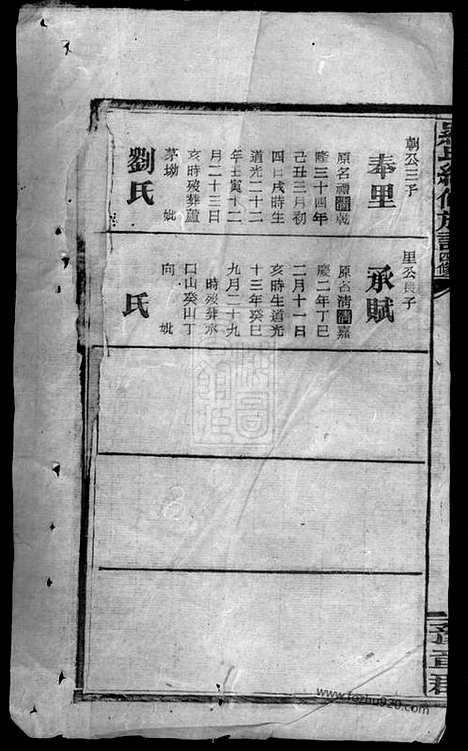 朝公三子
奉里
原名禮清乾
隆三十四年
己丑三月初
四日戌時生
道光二十二
年壬寅十二
月二十三日
亥時殁葬蘆
茅坳 妣
劉氏
里公長子
承賦
原名清清嘉
慶二年丁巳
二月十一日
亥時生道光
十三年癸巳
九月二十九
時殁葬水
口山癸山丁
向 妣
氏